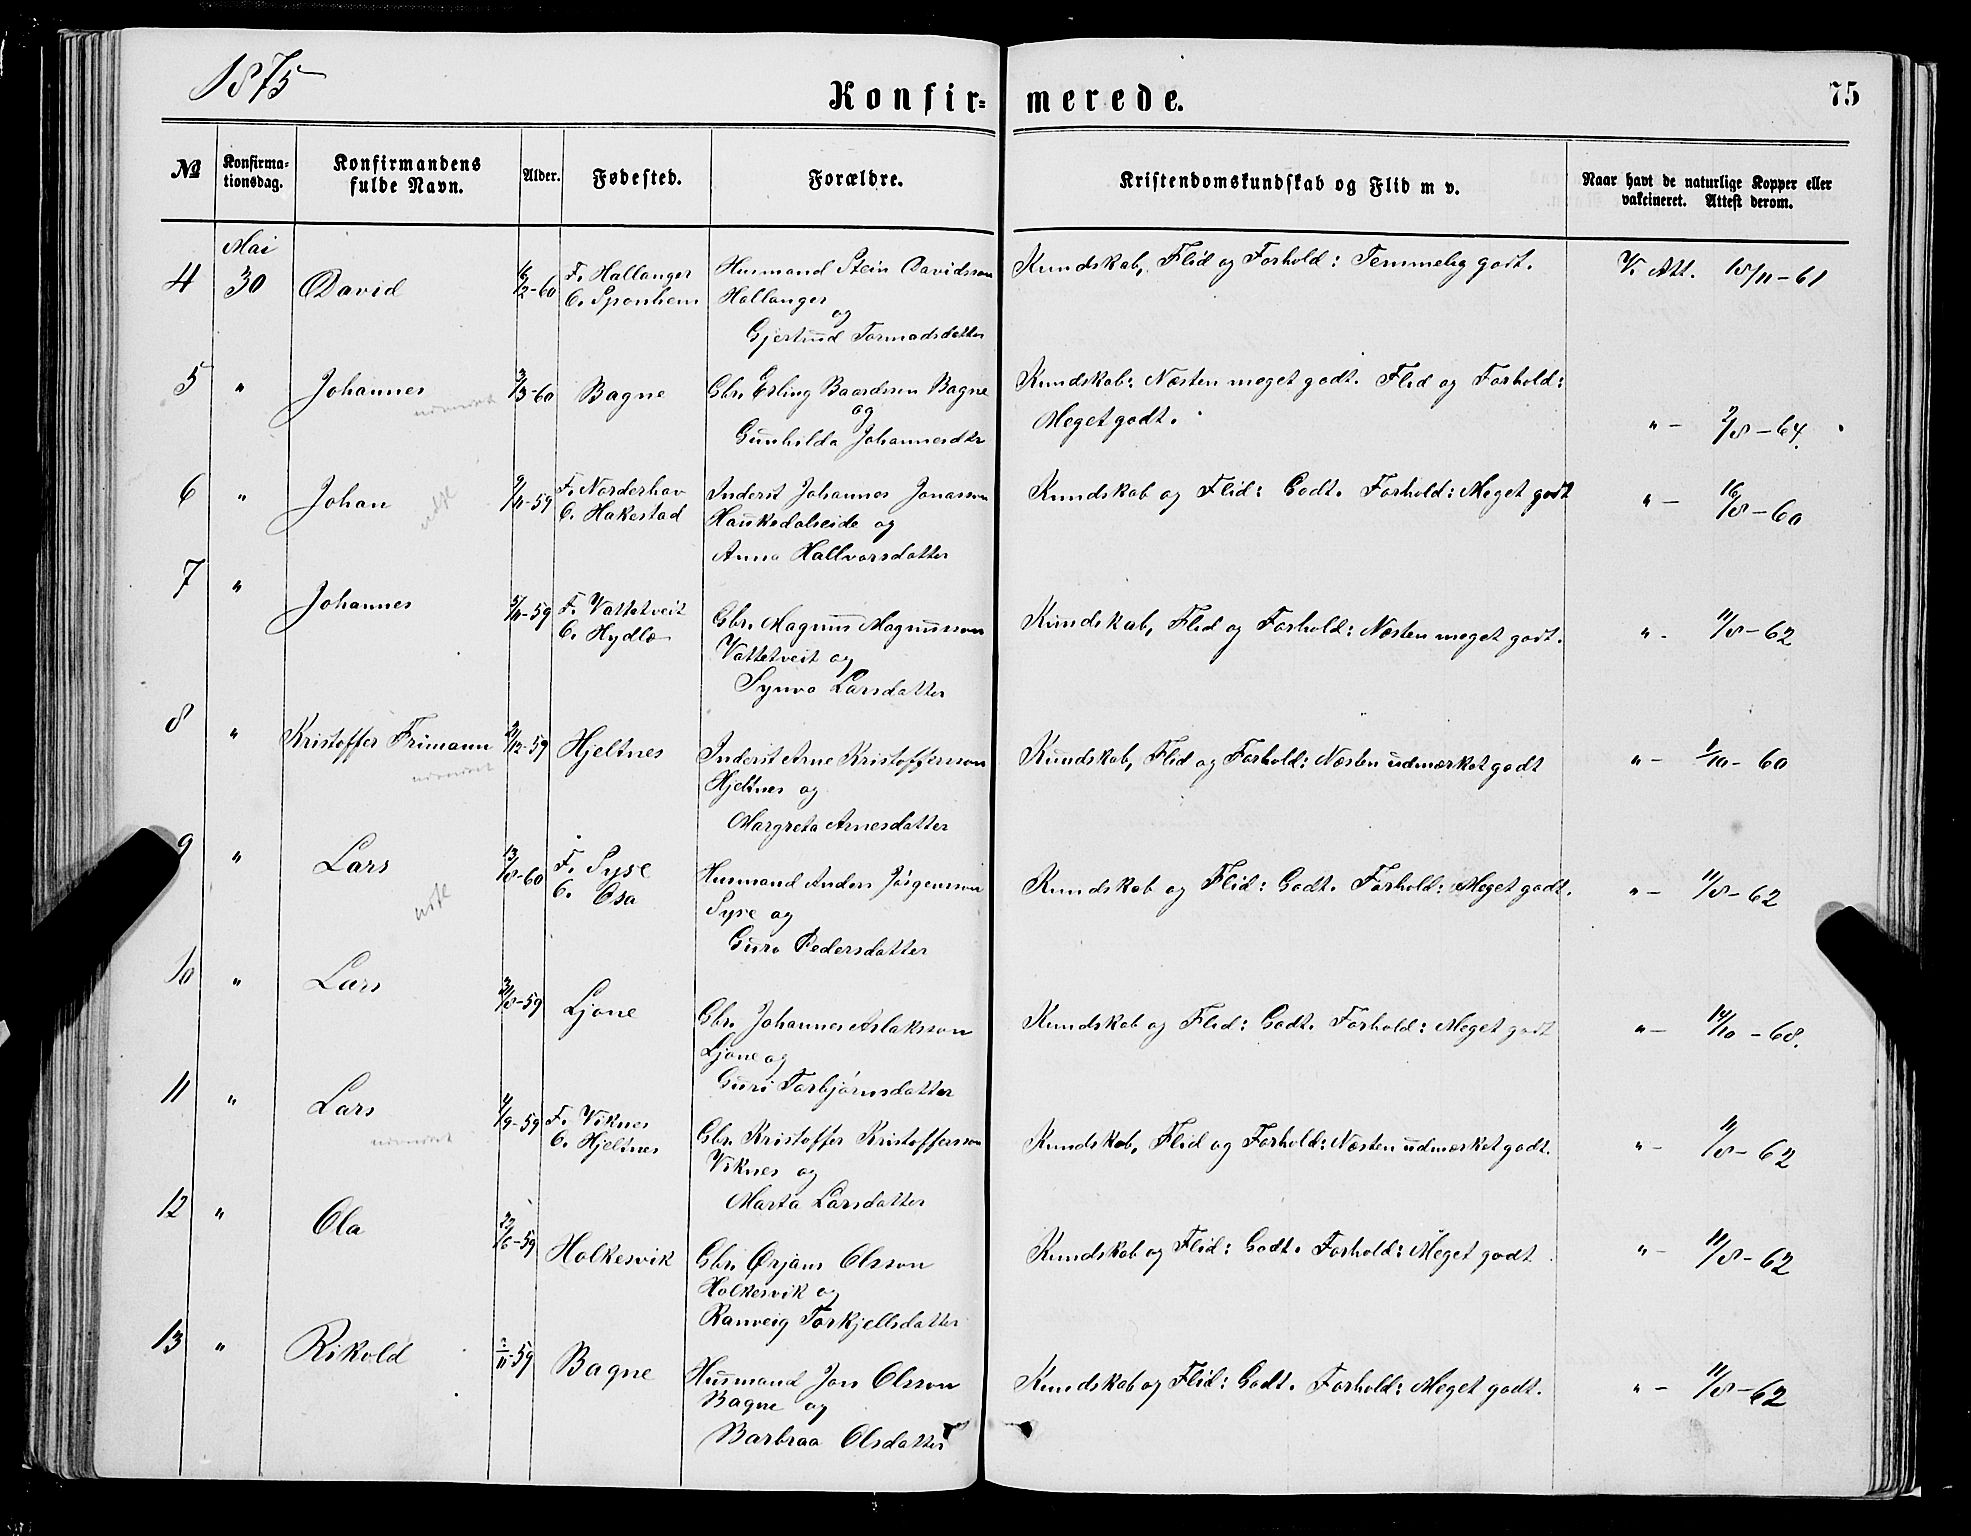 1875
Konfir= merede. 75
№ Konfirma= tionsdag. Konfirmandens fulde Navn. Alder. Fødested. Forældre. Kristendomskundskab og Flid m v. Naar havt de naturlige Kopper eller vakcineret. Attest derom.
Mai
4 30 David 16/2-60 F. Hallanger Husmand Stein Davidsson Kundskab, Flid og Forhold: Temmelig godt. V. Att. 15/11-61
O. Sponhem Hallanger
og
Gjertrud Tormodsdatter
5 " Johannes 3/3-60 Bagne Gbr. Erling Baardsen Bagne Kundskab: Næsten meget godt. Flid og Forhold:
og Meget godt. " - 2/8-64.
Gunhilda Johannesdtr
6 " Johan 9/11-59 F. Norderhov Inderst Johannes Jonasson Kundskab og Flid: Godt. Forhold: Meget godt " - 16/8-60
O. Hakestad Hauksdalseide og
Anna Hallvorsdatter
7 " Johannes 5/11-59 F. Vattetveit Gbr. Magnus Magnusson Kundskab, Flid og Forhold: Næsten meget godt. " - 11/8-62
O. Hydle Vattetveit og
Synva Larsdatter
8 " Kristoffer Frimann 21/12-59 Hjeltnes Inderst Arne Kristoffersson Kundskab, Flid og Forhold: Næsten udmærket godt " - 1/10-60
Hjeltnes og
Margreta Arnesdatter
9 " Lars 13/8-60 F. Syse Husmand Anders Jörgensson Kundskab og Flid: Godt. Forhold: Meget godt. " - 11/8-62
O. Osa Syse og
Guro Pedersdatter
10 " Lars 31/8-59 Ljone Gbr. Johannes Aslaksson Kundskab og Flid: Godt. Forhold: Meget godt " - 14/10-68.
Ljone og
Guri Torbjörnsdatter
11 " Lars 4/9-59 F. Viknes Gbr. Kristoffer Kristoffersson Kundskab, Flid og Forhold: Næsten udmærket godt. " - 11/8-62
O. Hjeltnes Viknes og
Marta Larsdatter
12 " Ola 22/6-59 Holkesvik Gbr. Ørjans Olsson Kundskab og Flid: Godt. Forhold: Meget godt " - 11/8-62
Holkesvik og
Ranveig Torkjellsdatter
13 " Rikold 2/11-59 Bagne Husmand Jon Olsson Kundskab og Flid: Godt. Forhold: Meget godt. " - 11/8-62
Bagne og
Barbraa Olsdatter